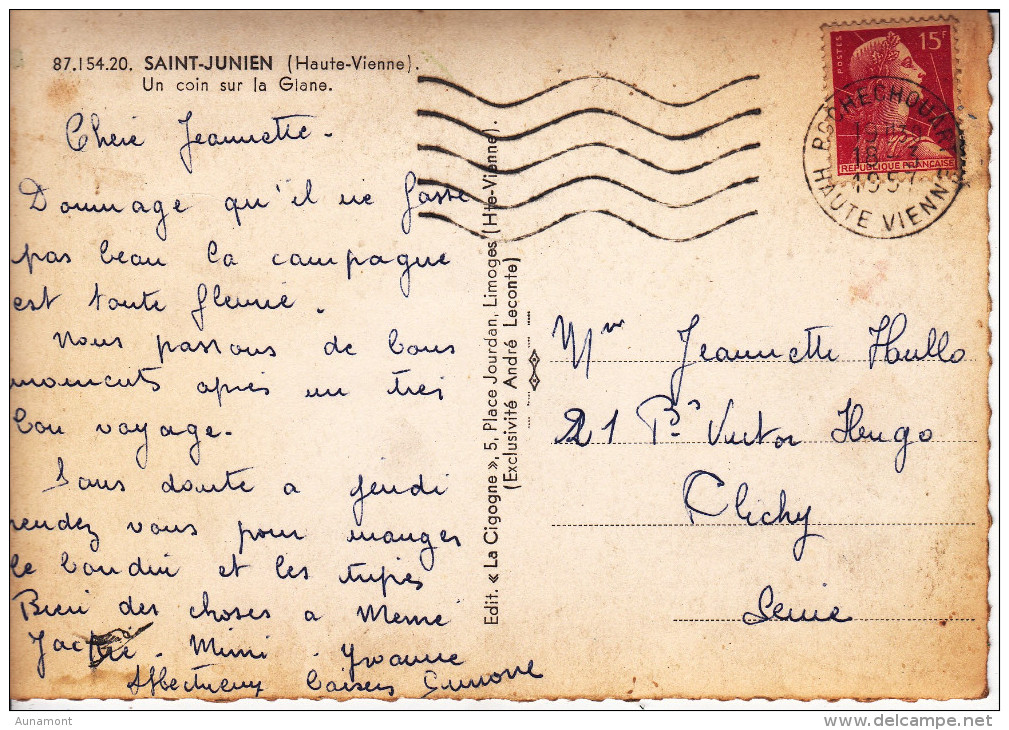 87.154.20. SAINT-JUNIEN (Haute-Vienne).
Un coin sur la Glane.
Chère Jeannette -
Dommage qu'il ne fasse
pas beau la campagne
est toute fleurie.
Nous passons de bons
moments après un très
bon voyage -
Sans doute a jeudi
rendez vous pour manger
le boudin et les tripes
Bien des choses a Meme
Mimi - Yvonne
Affectueux baisers Simone
Edit. « La Cigogne », 5, Place Jourdan, Limoges (Hte-Vienne).
(Exclusivité André Leconte)
POSTES
15F
REPUBLIQUE FRANÇAISE
ROCHECHOUART
18
1957
HAUTE VIENNE
Mme Jeannette Hullo
21 Bd Victor Hugo
Clichy
Seine
Aunamont
delcampe.net